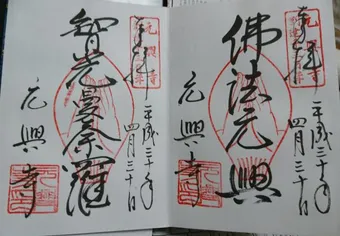 奉拝
平成三十年
四月三十日
佛法元興
元興寺
奉拝
平成三十年
四月三十日
智光曼荼羅
元興寺